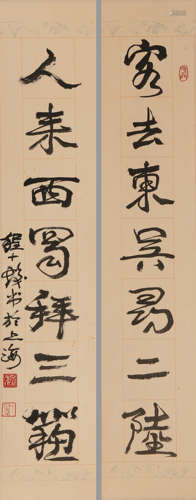 客去東吴尋二陸
人来西蜀拜三蘇
程十髮书於上海